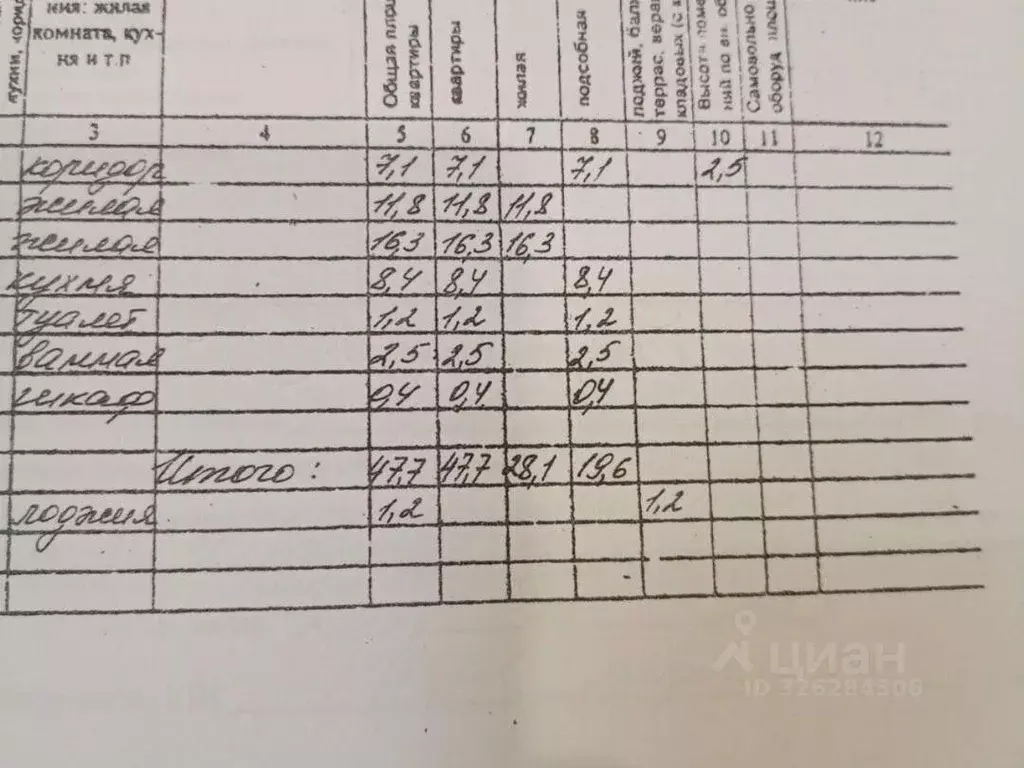 ния: жилая
комната, кух-
ня и т.п
Общая
квартиры
квартиры
жилая
подсобная
3 4 5 6 7 8 9 10 11 12
коридор 7,1 7,1 7,1 2,5
жилая 11,8 11,8 11,8
жилая 16,3 16,3 16,3
кухня 8,4 8,4 8,4
туалет 1,2 1,2 1,2
ванная 2,5 2,5 2,5
шкаф 0,4 0,4 0,4
Итого: 47,7 47,7 28,1 19,6
лоджия 1,2 1,2
циан
ID 326284506